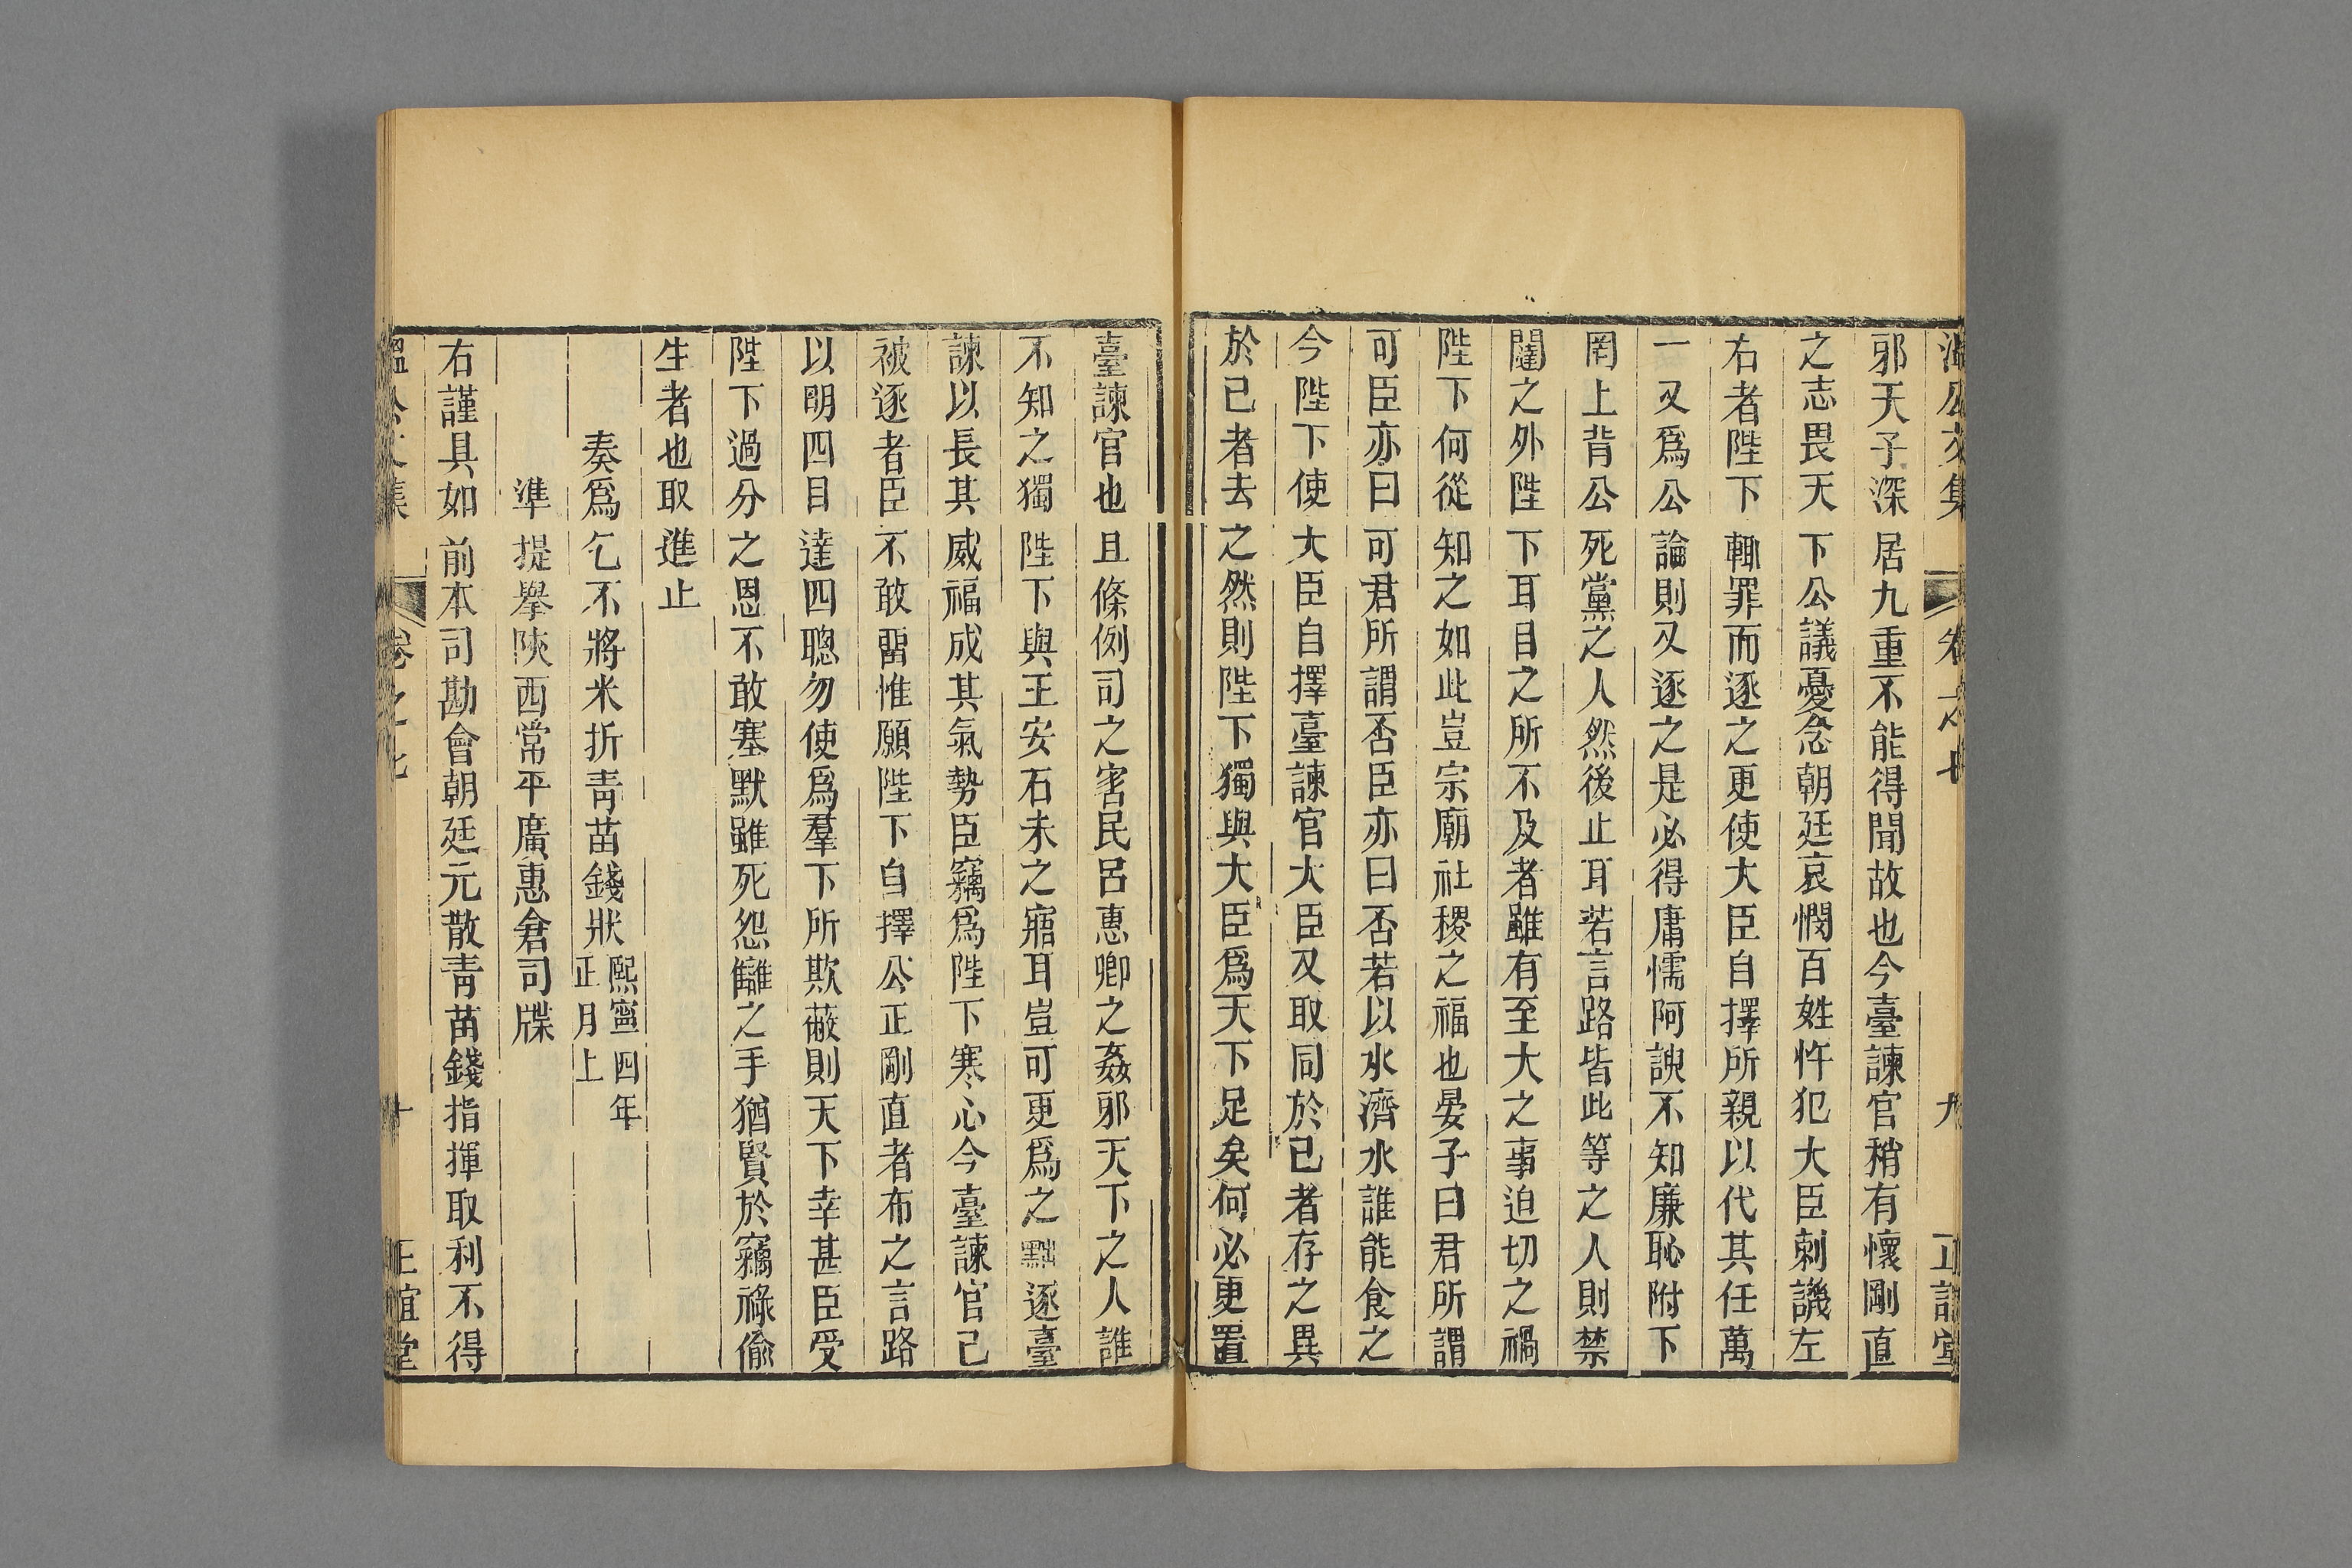 溫公文集 卷之七 九 正誼堂
邪天子深居九重不能得聞故也今臺諫官稍有懷剛直
之志畏天下公議憂念朝廷哀憫百姓忤犯大臣刺譏左
右者陛下輙罪而逐之更使大臣自擇所親以代其任萬
一又爲公論則又逐之是必得庸懦阿諛不知廉恥附下
罔上背公死黨之人然後止耳若言路皆此等之人則禁
闥之外陛下耳目之所不及者雖有至大之事迫切之禍
陛下何從知之如此豈宗廟社稷之福也晏子曰君所謂
可臣亦曰可君所謂否臣亦曰否若以水濟水誰能食之
今陛下使大臣自擇臺諫官大臣又取同於已者存之異
於已者去之然則陛下獨與大臣爲天下足矣何必更置
臺諫官也且條例司之害民呂惠卿之姦邪天下之人誰
不知之獨陛下與王安石未之寤耳豈可更爲之黜逐臺
諫以長其威福成其氣勢臣竊爲陛下寒心今臺諫官已
被逐者臣不敢畱惟願陛下自擇公正剛直者布之言路
以明四目達四聰勿使爲羣下所欺蔽則天下幸甚臣受
陛下過分之恩不敢塞默雖死怨讎之手猶賢於竊祿偷
生者也取進止
奏爲乞不將米折靑苗錢狀 熙寧四年
正月上
準提舉陝西常平廣惠倉司牒
右謹具如前本司勘會朝廷元散靑苗錢指揮取利不得
溫公文集 卷之七 十 正誼堂